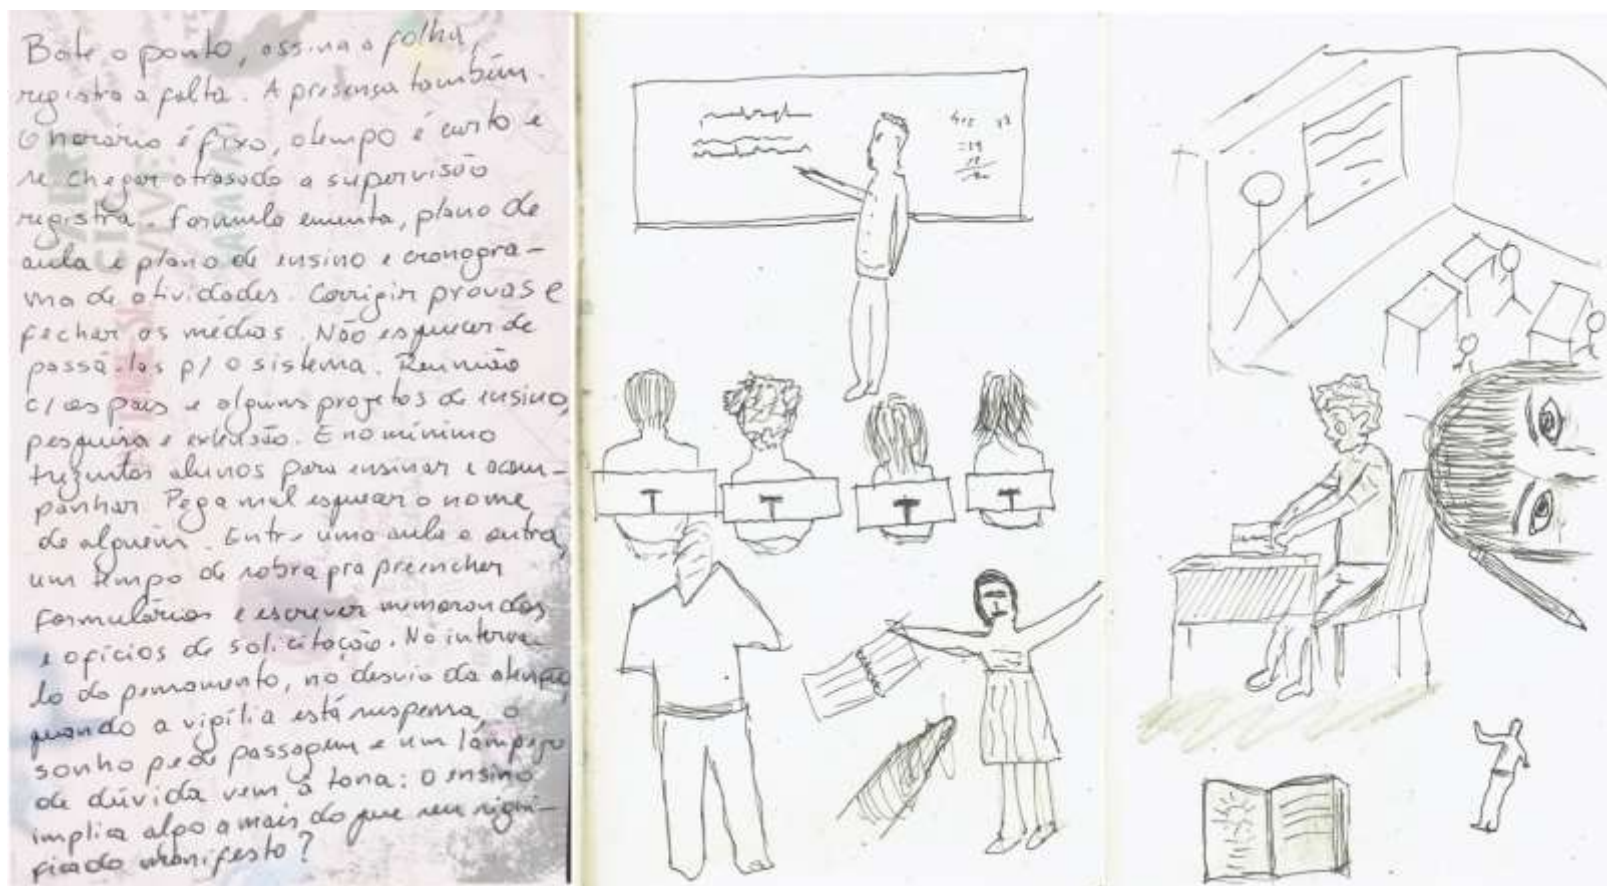 Bate o ponto, assina a folha,
registra a falta. A presença também.
O horário é fixo, o tempo é curto e
se chegar atrasado a supervisão
registra. Formula ementa, plano de
aula e plano de ensino e cronogra-
ma de atividades. Corrigir provas e
fechar as médias. Não esquecer de
passá-las p/ o sistema. Reunião
c/ os pais e alguns projetos de ensino,
pesquisa e extensão. E no mínimo
trezentos alunos para ensinar e acom-
panhar. Pega mal esquecer o nome
de alguém. Entre uma aula e outra,
um tempo de sobra pra preencher
formulários e escrever memorandos
e ofícios de solicitação. No interva-
lo do pensamento, no desvio da atenção,
quando a vigília está suspensa, o
sonho pede passagem e um lampejo
de dúvida vem à tona: O ensino
implica algo a mais do que seu signi-
ficado manifesto?
T T T T